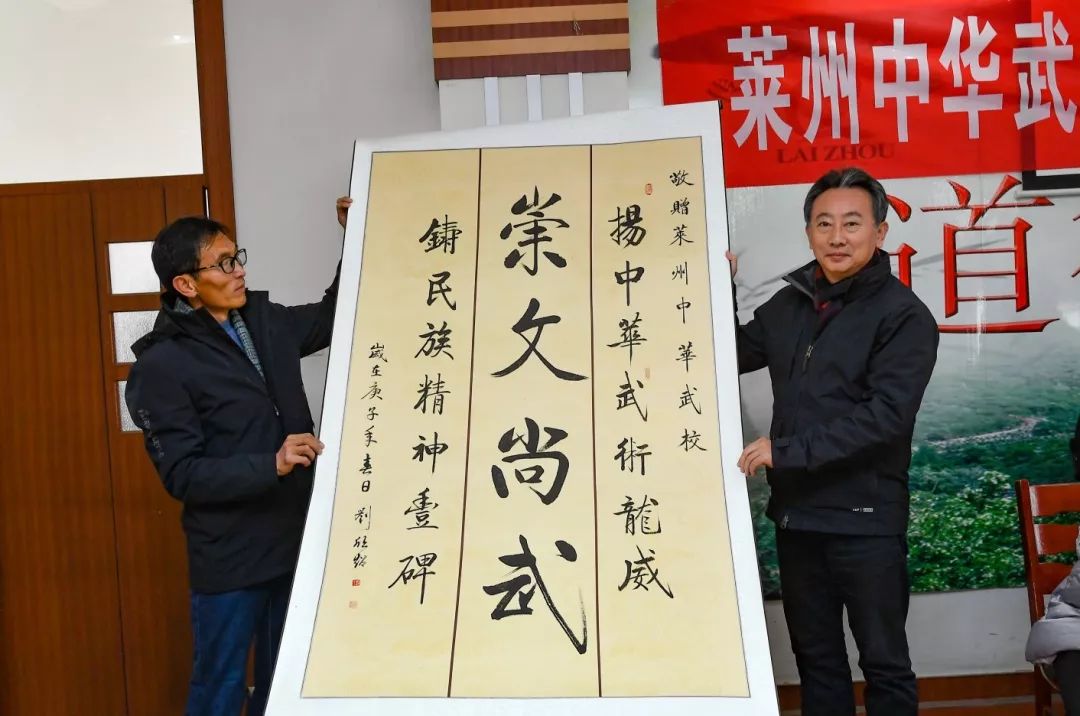 莱州中华武
LAI ZHOU
道
敬贈萊州中華武校
揚中華武術龍威
崇文尚武
鑄民族精神豐碑
歲在庚子年春日 劉